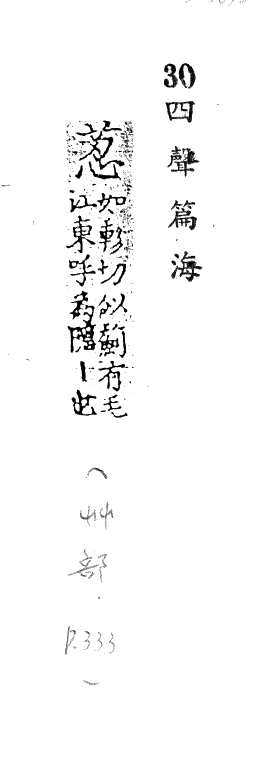 30 四聲篇海
荵
如軫切似薊有毛
江東呼為隱丨也
(艸部.P.333)